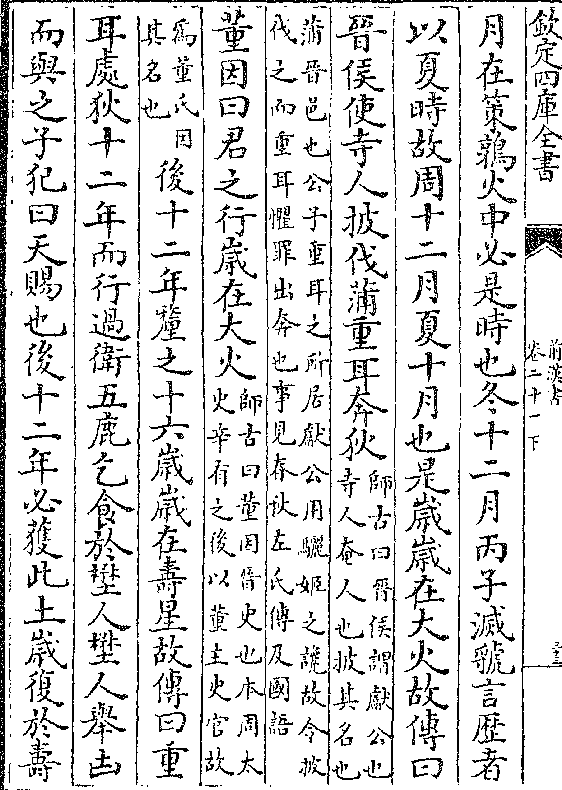 欽定四庫全書
前漢書
卷二十一下
月在策鶉火中必是時也冬十二月丙子滅虢言歴者
以夏時故周十二月夏十月也是歳歳在大火故傳曰
晉侯使寺人披伐蒲重耳奔狄
師古曰晉侯謂獻公也
寺人奄人也披其名也
蒲晉邑也公子重耳之所居獻公用驪姬之讒故令披
伐之而重耳懼罪出奔也事見春秋左氏傳及國語
董因曰君之行歳在大火
師古曰董因晉史也本周太
史辛有之後以董主史官故
為董氏因
其名也
後十二年釐之十六歳歳在壽星故傳曰重
耳處狄十二年而行過衛五鹿乞食於埜人埜人舉凷
而與之子犯曰天賜也後十二年必獲此土歳復於壽